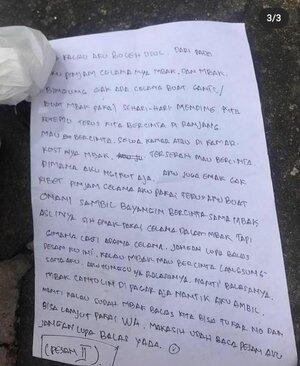 3/3
KALAU AKU BOLEH USUL. DARI PADA
AKU PINJAM CELANA NYA MBAK, DAN MBAK
BINGUNG GAK ADA CELANA BUAT GANTI /
BUAT MBAK PAKAI SEHARI-HARI MENDING KITA
KETEMU TERUS KITA BERCINTA DI RANJANG.
MAU BERCINTA. SEWA KAMAR ATAU DI KAMAR
KOST NYA MBAK. TERSERAH MAU BERCINTA
DIMANA AKU NGIKUT AJA. AKU JUGA ENAK GAK
RIBET PINJAM CELANA AKU PAKAI TERUS AKU BUAT
ONANI SAMBIL BAYANGIN BERCINTA SAMA MBAK
ASLINYA SIH ENAK PAKAI CELANA DALEM MBAK TAPI
GIMANA LAGI ADANYA CELANA. JANGAN LUPA BALAS
PESAN KU INI. KALAU MBAK MAU BERCINTA LANGSUNG
SAMA AKU. AKU TUNGGU YA BALASANYA. NANTI BALASANYA
MBAK CANTOLIN DI PAGAR AJA NANTI AKU AMBIL.
NANTI KALAU SUDAH MBAK BALAS KITA BISA TUKAR NO DAN
BISA LANJUT PAKAI WA. MAKASIH UDAH BACA PESAN AKU
JANGAN LUPA BALAS YADA.
(PESAN II)